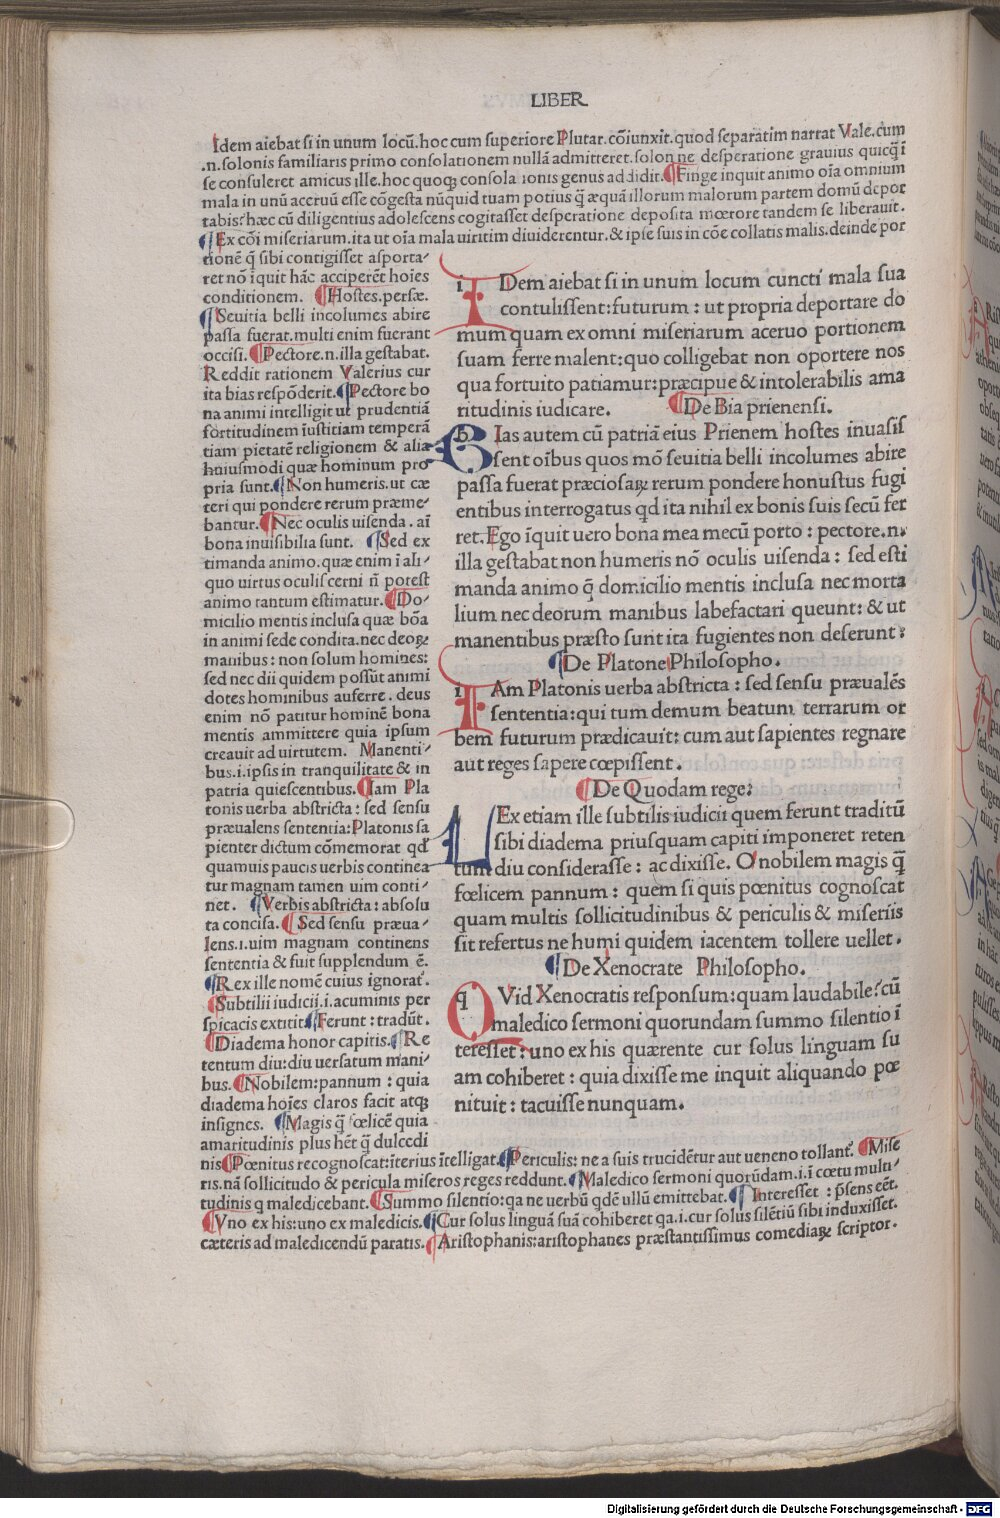 LIBER
Idem aiebat si in unum locū.hoc cum superiore Plutar.cōiunxit.quod separatim narrat Vale.cum
.n.solonis familiaris primo consolationem nullā admitteret.solon ne desperatione grauius quicq̄ ī
se consuleret amicus ille.hoc quoqȝ consolationis genus addidit.¶Finge inquit animo oīa omnium
mala in unū aceruū esse cōgesta nūquid tuam potius q̄ æquā illorum malorum partem domū depor
tabis?hæc cū diligentius adolescens cogitasset desperatione deposita mœrore tandem se liberauit.
¶Ex cōi miseriarum.ita ut oīa mala uiritim diuiderentur.& ipse suis in cōe collatis malis.deinde por
tionē q̄ sibi contigisset asporta-
ret nō īquit hāc acciperēt hoīes
conditionem. ¶Hostes.persæ.
¶Seuitia belli incolumes abire
passa fuerat.multi enim fuerant
occisi.¶Pectore.n.illa gestabat.
Reddit rationem Valerius cur
ita bias respōderit.¶Pectore bo
na animi intelligit ut prudentiā
fortitudinem iustitiam temperā
tiam pietatē religionem & alia
huiusmodi quæ hominum pro
pria sunt.¶Non humeris.ut cæ
teri qui pondere rerum præme-
bantur.¶Nec oculis uisenda.aī
bona inuisibilia sunt. ¶Sed ex
timanda animo.quæ enim ī ali-
quo uirtus oculis cerni n̄ potest
animo tantum estimatur.¶Do-
micilio mentis inclusa quæ bōa
in animi sede condita.nec deoꝝ
manibus: non solum homines:
sed nec dii quidem possūt animi
dotes hominibus auferre.deus
enim nō patitur hominē bona
mentis ammittere quia ipsum
creauit ad uirtutem. Manenti-
bus.i.ipsis in tranquilitate & in
patria quiescentibus.¶Iam Pla
tonis uerba abstricta: sed sensu
præualens sententia:Platonis sa
pienter dictum cōmemorat qd̄
quamuis paucis uerbis continea
tur magnam tamen uim conti-
net. ¶Verbis abstricta: absolu
ta concisa.¶Sed sensu præua-
lens.i.uim magnam continens
sententia & fuit supplendum ē.
¶Rex ille nomē cuius ignorat̄.
¶Subtilii iudicii.i.acuminis per
spicacis extitit¶Ferunt: tradūt.
¶Diadema honor capitis.¶Re
tentum diu:diu uersatum mani-
bus.¶Nobilem:pannum: quia
diadema hoīes claros facit atqȝ
insignes. ¶Magis q̄ fœlicē quia
amaritudinis plus hēt q̄ dulcedi
i Dem aiebat si in unum locum cuncti mala sua
contulissent:futurum: ut propria deportare do
mum quam ex omni miseriarum aceruo portionem
suam ferre malent:quo colligebat non oportere nos
qua fortuito patiamur:præcipue & intolerabilis ama
ritudinis iudicare. ¶De Bia prienensi.
b Ias autem cū patriā eius Prienem hostes inuasis
sent oībus quos mō seuitia belli incolumes abire
passa fuerat præciosaꝝ rerum pondere honustus fugi
entibus interrogatus qd ita nihil ex bonis suis secū fer
ret.Ego īquit uero bona mea mecū porto: pectore.n.
illa gestabat non humeris nō oculis uisenda: sed esti
manda animo q̄ domicilio mentis inclusa nec morta
lium nec deorum manibus labefactari queunt: & ut
manentibus præsto sunt ita fugientes non deserunt:
¶De Platone Philosopho.
i Am Platonis uerba abstricta: sed sensu præualēs
sententia:qui tum demum beatum terrarum or
bem futurum prædicauit: cum aut sapientes regnare
aut reges sapere cœpissent.
¶De Quodam rege:
L Ex etiam ille subtilis iudicii quem ferunt traditū
sibi diadema priusquam capiti imponeret reten
tum diu considerasse: ac dixisse. O nobilem magis q̄
fœlicem pannum: quem si quis pœnitus cognoscat
quam multis sollicitudinibus & periculis & miseriis
sit refertus ne humi quidem iacentem tollere uellet.
¶De Xenocrate Philosopho.
q Vid Xenocratis responsum:quam laudabile?cū
maledico sermoni quorundam summo silentio ī
teresset: uno ex his quærente cur solus linguam su
am cohiberet: quia dixisse me inquit aliquando pœ
nituit: tacuisse nunquam.
nis¶Pœnitus recognoscat:īterius ītelligat.¶Periculis: ne a suis trucidētur aut ueneno tollant̄. ¶Mise
ris.nā sollicitudo & pericula miseros reges reddunt.¶Maledico sermoni quorūdam.i.ī cœtu multi-
tudinis q maledicebant.¶Summo silentio:qa ne uerbū qdē ullū emittebat.¶Interesset: p̄sens eēt.
¶Vno ex his:uno ex maledicis.¶Cur solus linguā suā cohiberet qa.i.cur solus silētiū sibi induxisset.
cæteris ad maledicendū paratis.¶Aristophanis:aristophanes præstantissimus comediaꝝ scriptor.
Digitalisierung gefördert durch die Deutsche Forschungsgemeinschaft - DFG